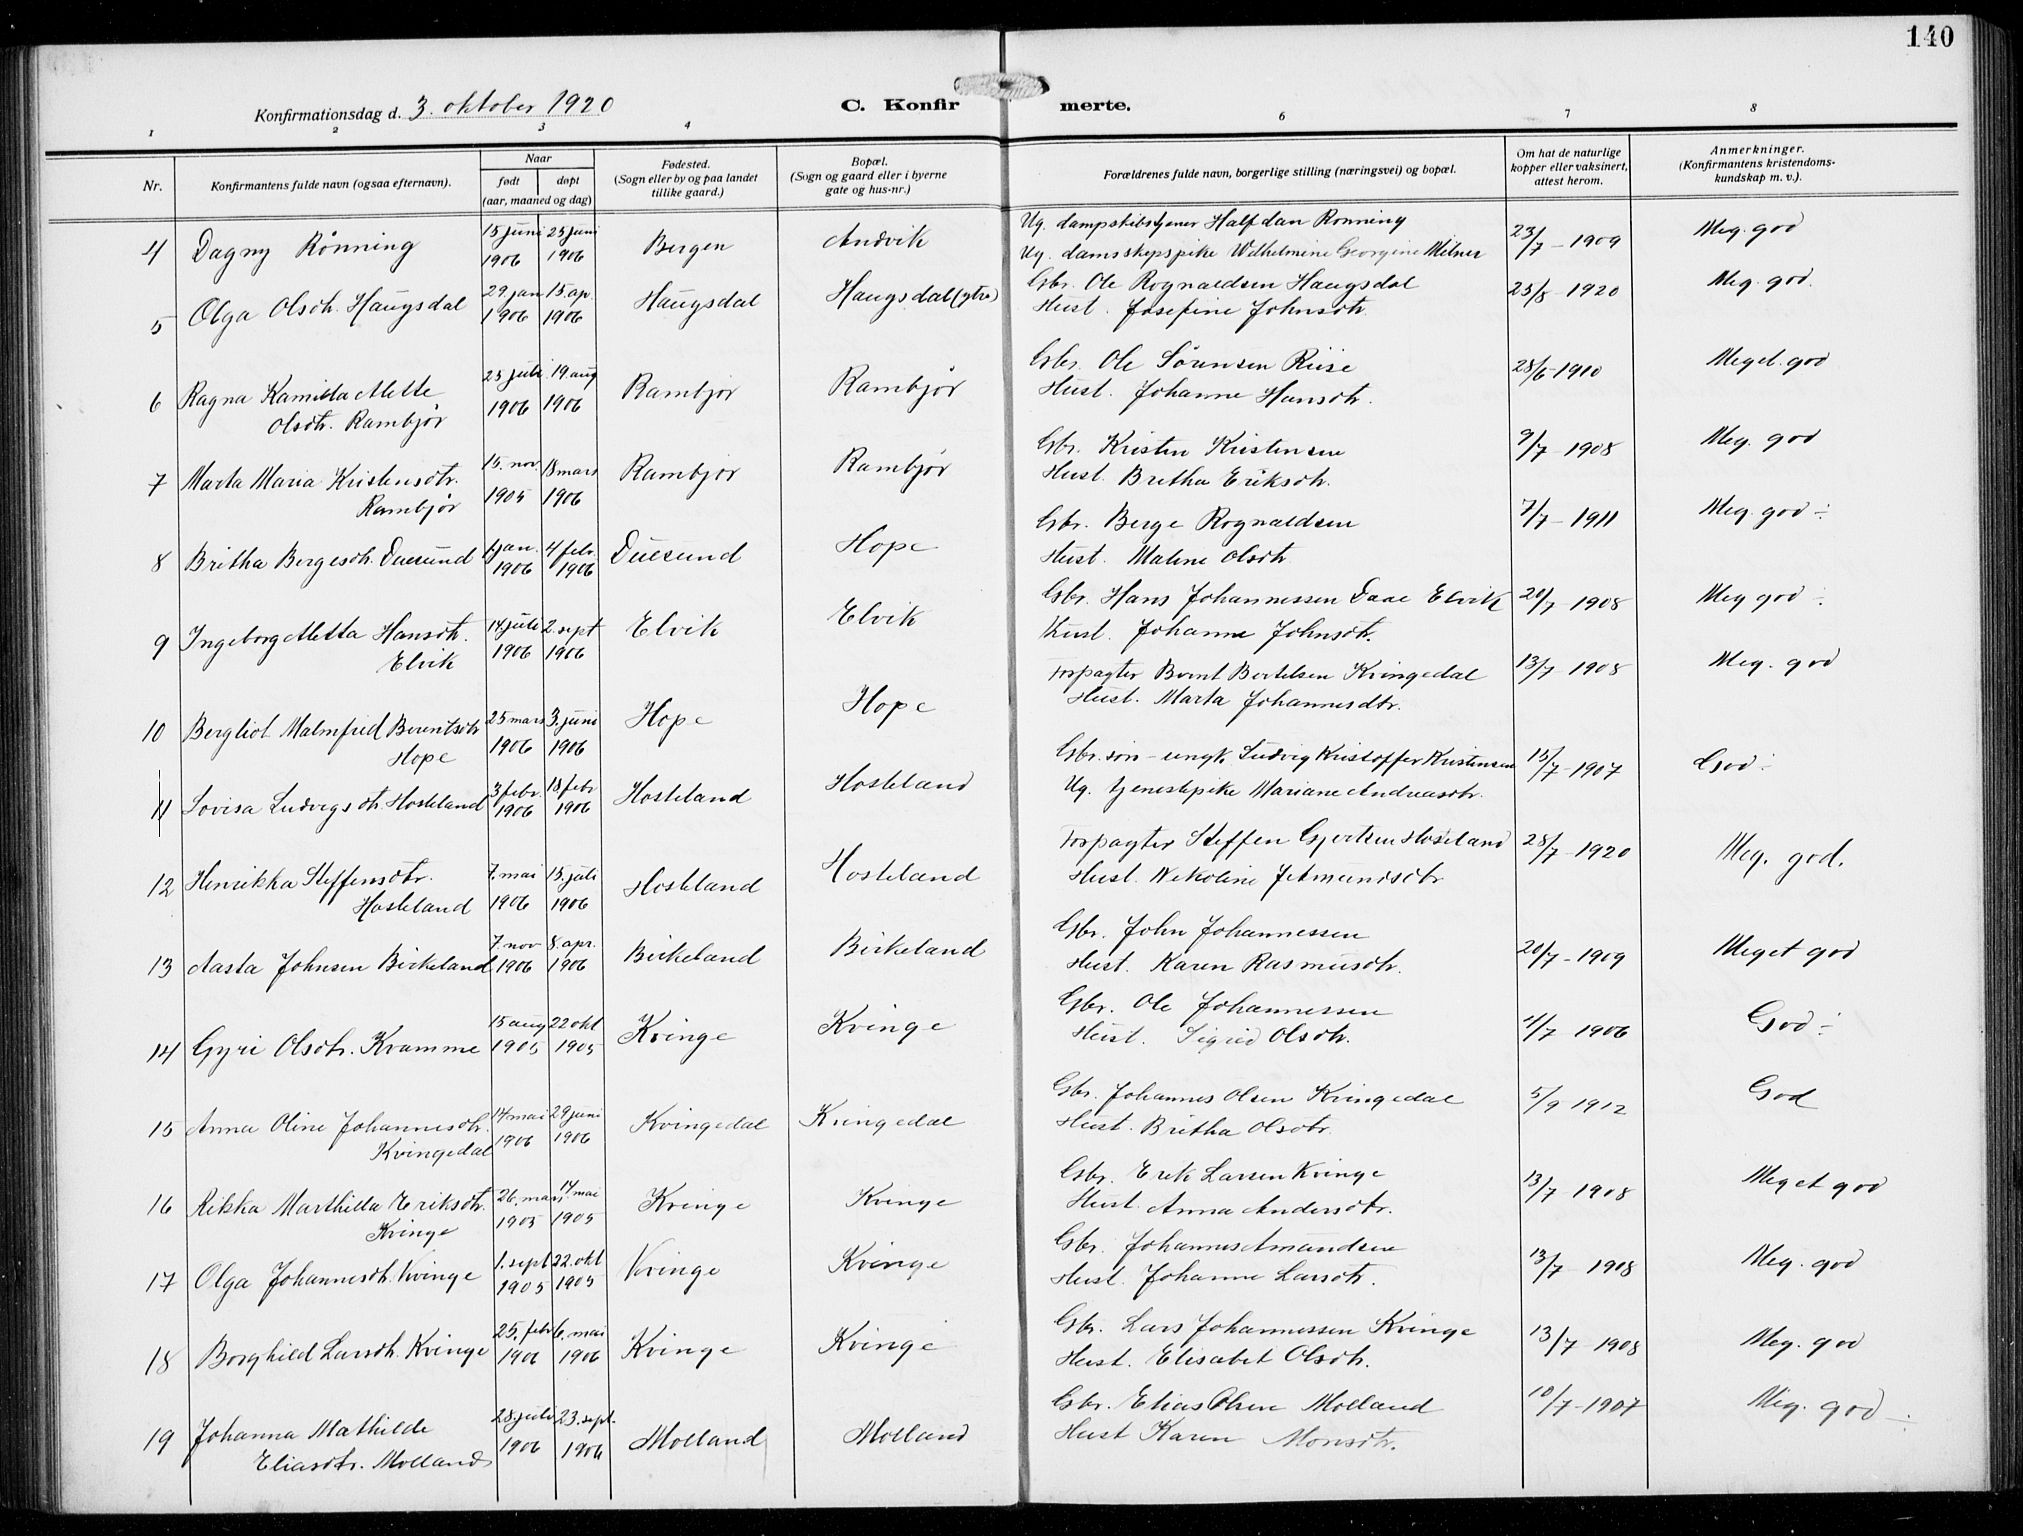 140
Konfirmationsdag d. 3. oktober 1920
C. Konfirmerte.
1 2 3 4 6 7 8
Nr.
Konfirmantens fulde navn (ogsaa efternavn).
Naar
født døpt
(aar, maaned og dag)
Fødested.
(Sogn eller by og paa landet
tillike gaard.)
Bopæl.
(Sogn og gaard eller i byerne
gate og hus-nr.)
Forældrenes fulde navn, borgerlige stilling (næringsvei) og bopæl.
Om hat de naturlige
kopper eller vaksinert,
attest herom.
Anmerkninger.
(Konfirmantens kristendoms-
kundskap m. v.).
4 Dagny Rönning 15 juni 1906 25 juni 1906 Bergen Andvik
Ug. dampskibstjener Halfdan Rönning
Ug. Wilhelmine Georgine Milner
23/7 - 1909 Meg. god
5 Olga Olsdtr. Haugsdal 29. jan 1906 15. ap. 1906 Haugsdal Haugsdal (ytre)
Gbr. Ole Rognaldsen Haugsdal
Hust. Josefine Johnsdtr.
25/8 - 1920 Meg. god.
6 Ragna Kamilla Mette
Olsdtr. Rambjör
23 juli 1906 19. aug 1906 Rambjör Rambjör
Gbr. Ole Sörensen Riise
Hust. Johanne Hansdtr.
28/6 - 1910 Meget god
7 Marta Maria Kristensdtr.
Rambjör
15. nov. 1905 18 mars 1906 Rambjör Rambjör
Gbr. Kristen Kristensen
Hust. Britha Eriksdtr.
9/7 - 1908 Meg. god
8 Britha Bergesdtr. Duesund jan. 1906 4 febr. 1906 Duesund Hope
Gbr. Berge Rognaldsen
Hust. Malene Olsdtr.
7/7 - 1911 Meg. god ÷
9 Ingeborg Metta Hansdtr.
Elvik
14 juli 1906 2. sept 1906 Elvik Elvik
Gbr. Hans Johannessen Daae Elvik
Hust. Johanne Johnsdtr.
20/7 - 1908 Meg god ÷
10 Bergliot Malmfrid Berentsdtr
Hope
25 mars 1906 3. juni 1906 Hope Hope
Forpagter Bernt Bertelsen Kvingedal
Hust. Marta Johannesdtr.
13/7 - 1908 Meg. god
11 Lovisa Ludvigsdtr. Hosteland 3 febr. 1906 18 febr 1906 Hosteland Hosteland
Gbr. sön - ungk. Ludvig Kristoffer Kristensen
Ug. tjenestepike Mariane Andreasdtr.
15/7 - 1907 God ÷
12 Henrikka Steffensdtr.
Hosteland
7. mai 1906 15. juli 1906 Hosteland Hosteland
Forpagter Steffen Gjertsen Hosteland
Hust. Nikoline Jetmundsdtr
28/7 - 1920 Meg. god.
13 Aasta Johnsen Birkeland 7. nov 1906 8. apr. 1906 Birkeland Birkeland
Gbr. John Johannessen
Hust. Karen Rasmusdtr.
20/7 - 1909 Meget god
14 Gyri Olsdtr. Kvamme 15 aug 1905 22 okt 1905 Kvinge Kvinge
Gbr. Ole Johannessen
Hust. Sigrid Olsdtr.
/7 - 1906 God ÷
15 Anna Oline Johannesdtr.
Kvingedal
14 mai 1906 29 juni 1906 Kvingedal Kvingedal
Gbr. Johannes Olsen Kvingedal
Hust. Britha Olsdtr.
5/9 1912 God
16 Rikka Marthilda Eriksdtr.
Kvinge
26. mars 1905 14 mai 1905 Kvinge Kvinge
Gbr. Erik Larsen Kvinge
Hust. Anna Andersdtr.
13/7 1908 Meget god
17 Olga Johannesdtr. Kvinge 1. sept 1905 22. okt 1905 Kvinge Kvinge
Gbr. Johannes Amundsen
Hust. Johanne Larsdtr.
13/7 - 1908 Meg. god
18 Borghild Larsdtr. Kvinge 25. febr 1906 6. mai 1906 Kvinge Kvinge
Gbr. Lars Johannessen Kvinge
Hust. Elisabet Olsdtr.
13/7 - 1908 Meg. god
19 Johanna Mathilde
Eliasdtr. Molland
28. juli 1906 23. sept. 1906 Molland Molland
Gbr. Elias Olsen Molland
Hust Karen Monsdtr.
10/7 - 1907 Meg. god ÷